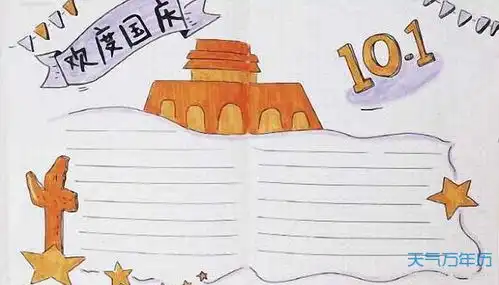 欢度国庆
10.1
天气万年历